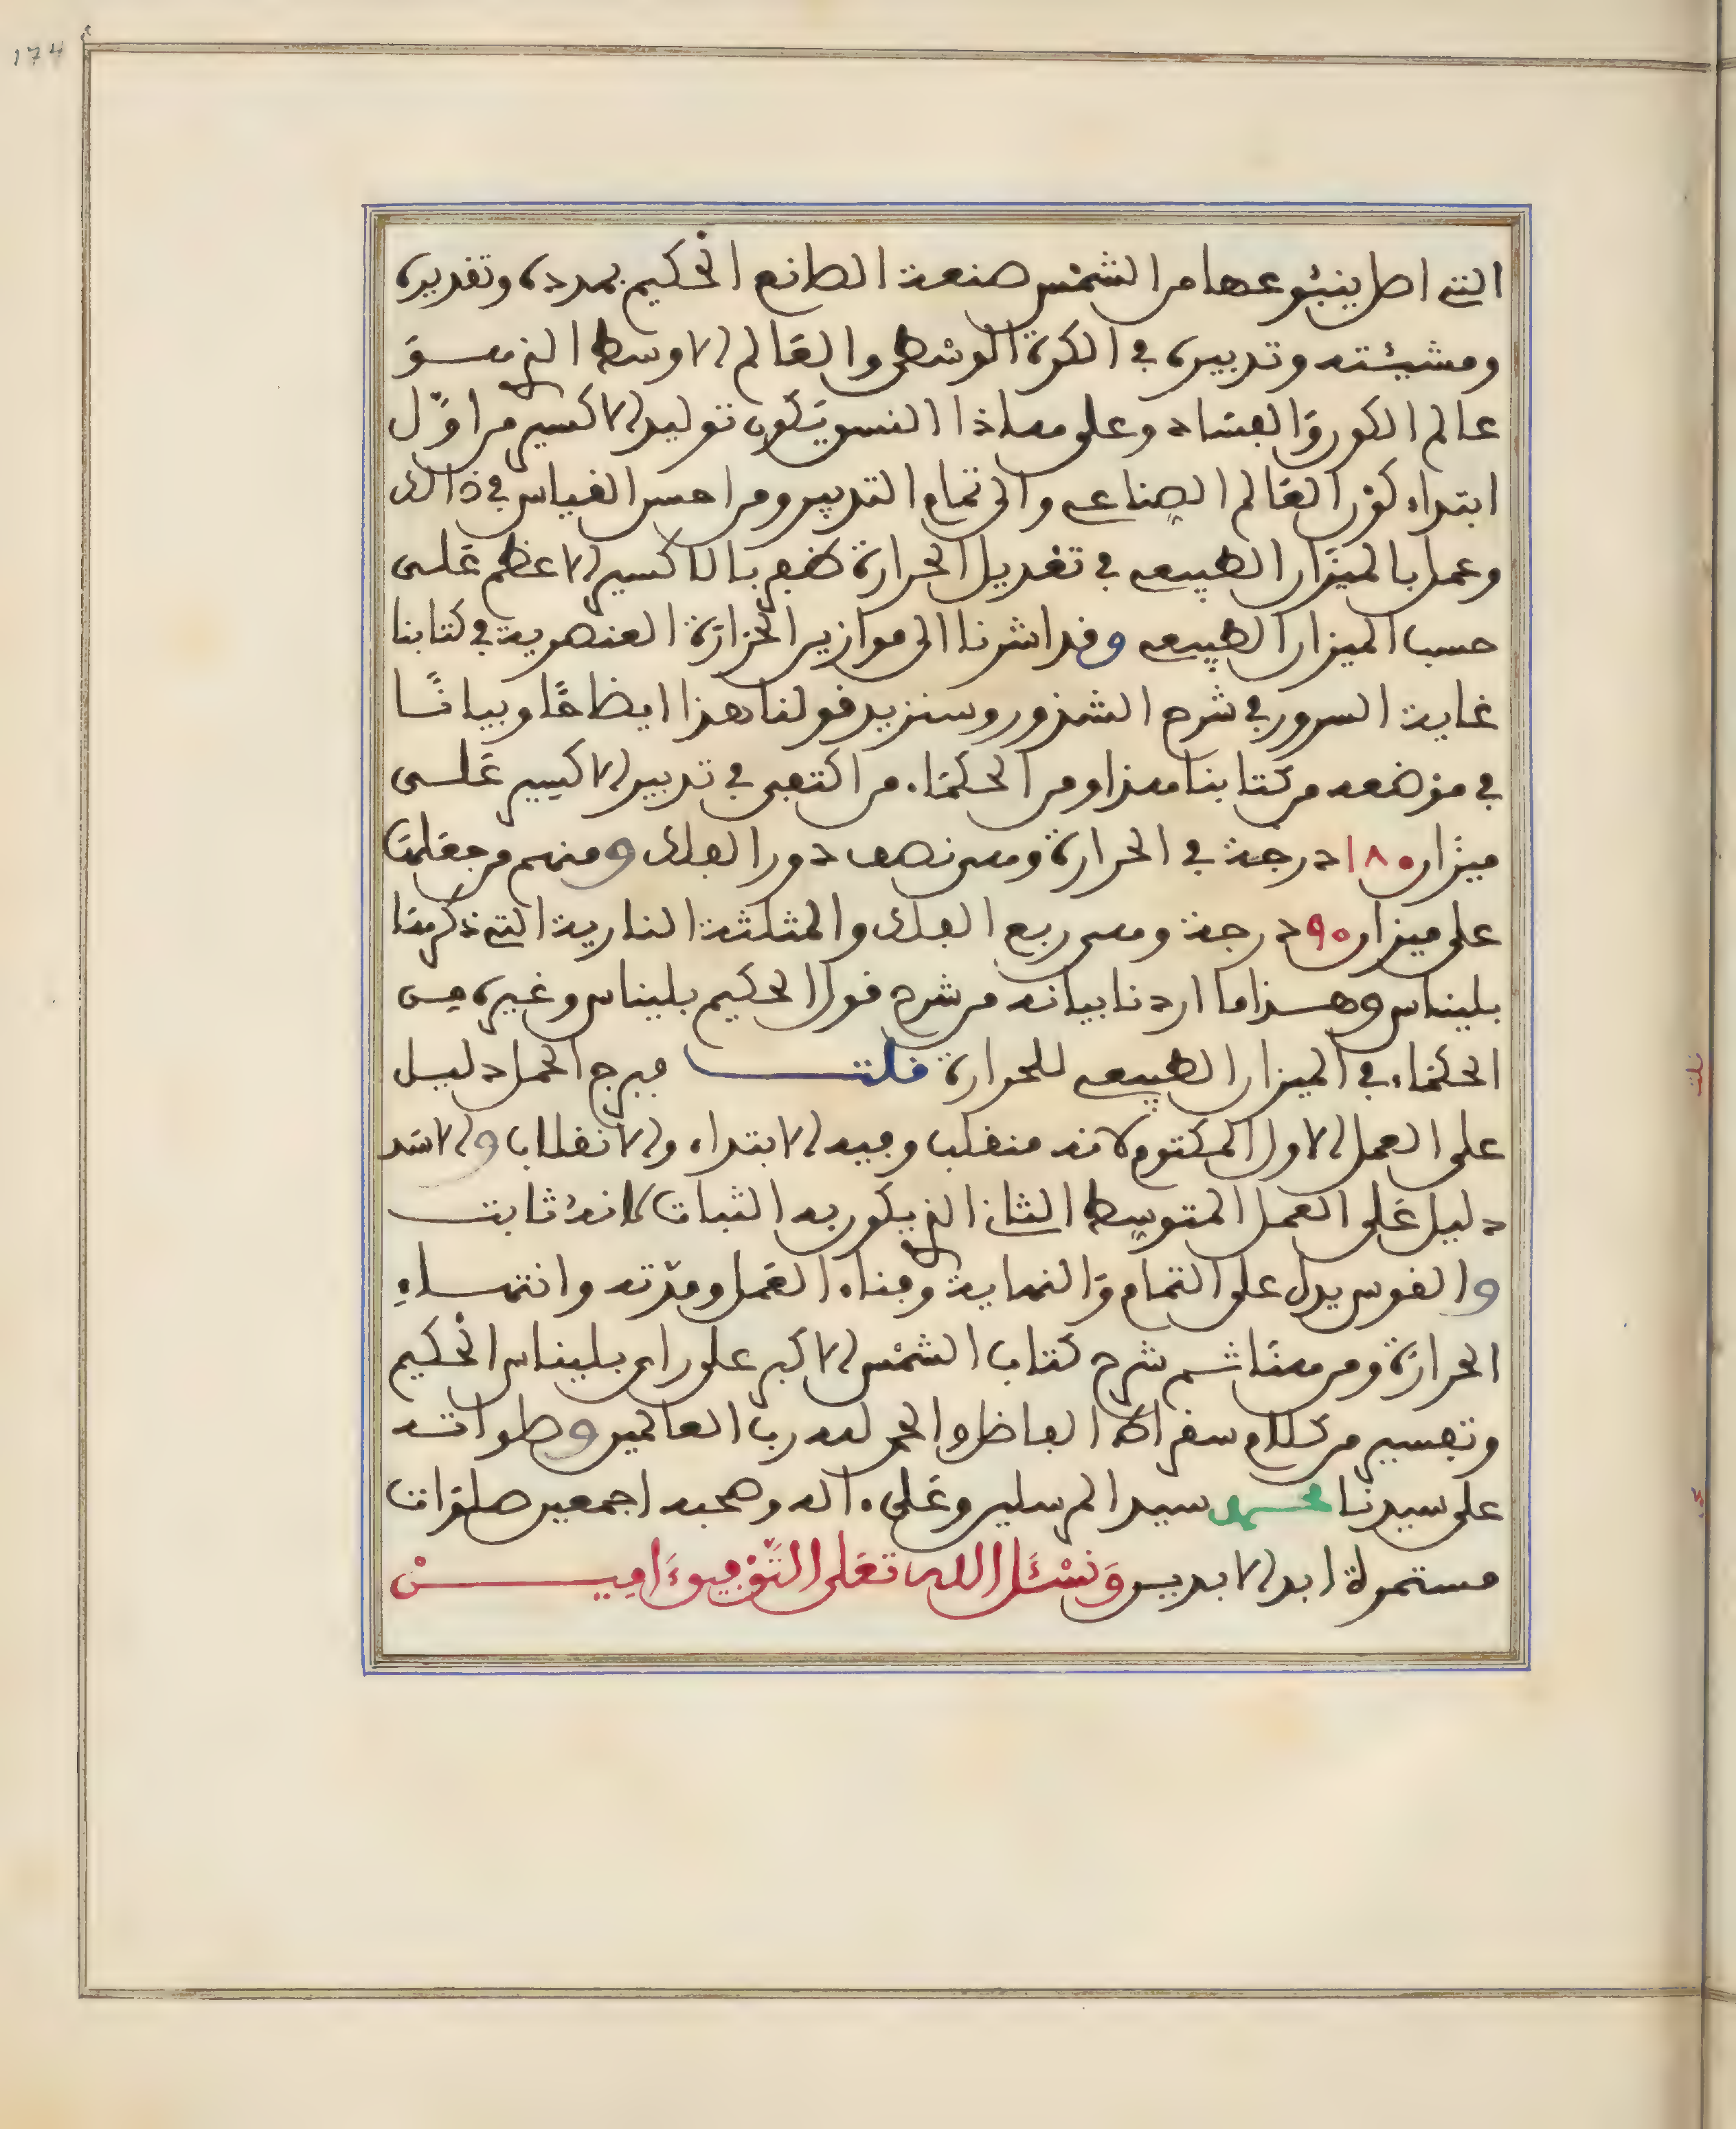 174
التي اصل ينبوعها من الشمس صنعة الصانع الحكيم بمدده وتقديره
ومشيئته وتدبيره في الكرة الوسطى والعالم الاوسط الذي هو
عالم الكون والفساد وعلى هاذا النسق يكون توليد الاكسير من اول
ابتداء كون العالم الصناعي والى تمام التدبير ومن احسن القياس في ذالك
وعمل بالميزان الطبيعي في تعديل الحرارة ظفر بالاكسير الاعظم على
حسب الميزان الطبيعي وقد اشرنا الى موازين الحرارة العنصرية في كتابنا
غاية السرور في شرح الشذور وسنزيد قولنا هذا ايضاحًا وبيانًا
في موضعه من كتابنا هذا ومن الحكماء من اكتفى في تدبير الاكسير على
ميزان ١٨٠ درجة في الحرارة وهي نصف دور الفلك ومنهم من جعلها
على ميزان ٩٠ درجة وهي ربع الفلك والمثلثة النارية التي ذكرها
بليناس وهذا ما اردنا بيانه من شرح قول الحكيم بليناس وغيره من
الحكماء في الميزان الطبيعي للحرارة قلت فبرج الحمل دليل
على العمل الاول المكتوم لانه منقلب وفيه الابتداء والانقلاب والاسد
دليل على العمل المتوسط الثاني الذي يكون به الثبات لانه ثابت
والقوس يدل على التمام والنهاية وفناء العمل ومدته وانتهاء
الحرارة ومن هنا تم شرح كتاب الشمس الاكبر على راي بليناس الحكيم
وتفسير من كلام سقراط الفاضل والحمد لله رب العالمين وصلواته
على سيدنا محمد سيد المرسلين وعلى ءاله وصحبه اجمعين صلوات
مستمرة ابد الابدين وَنَسْئَل الله تعَلى التَّوْفيق ءَامِيــنْ